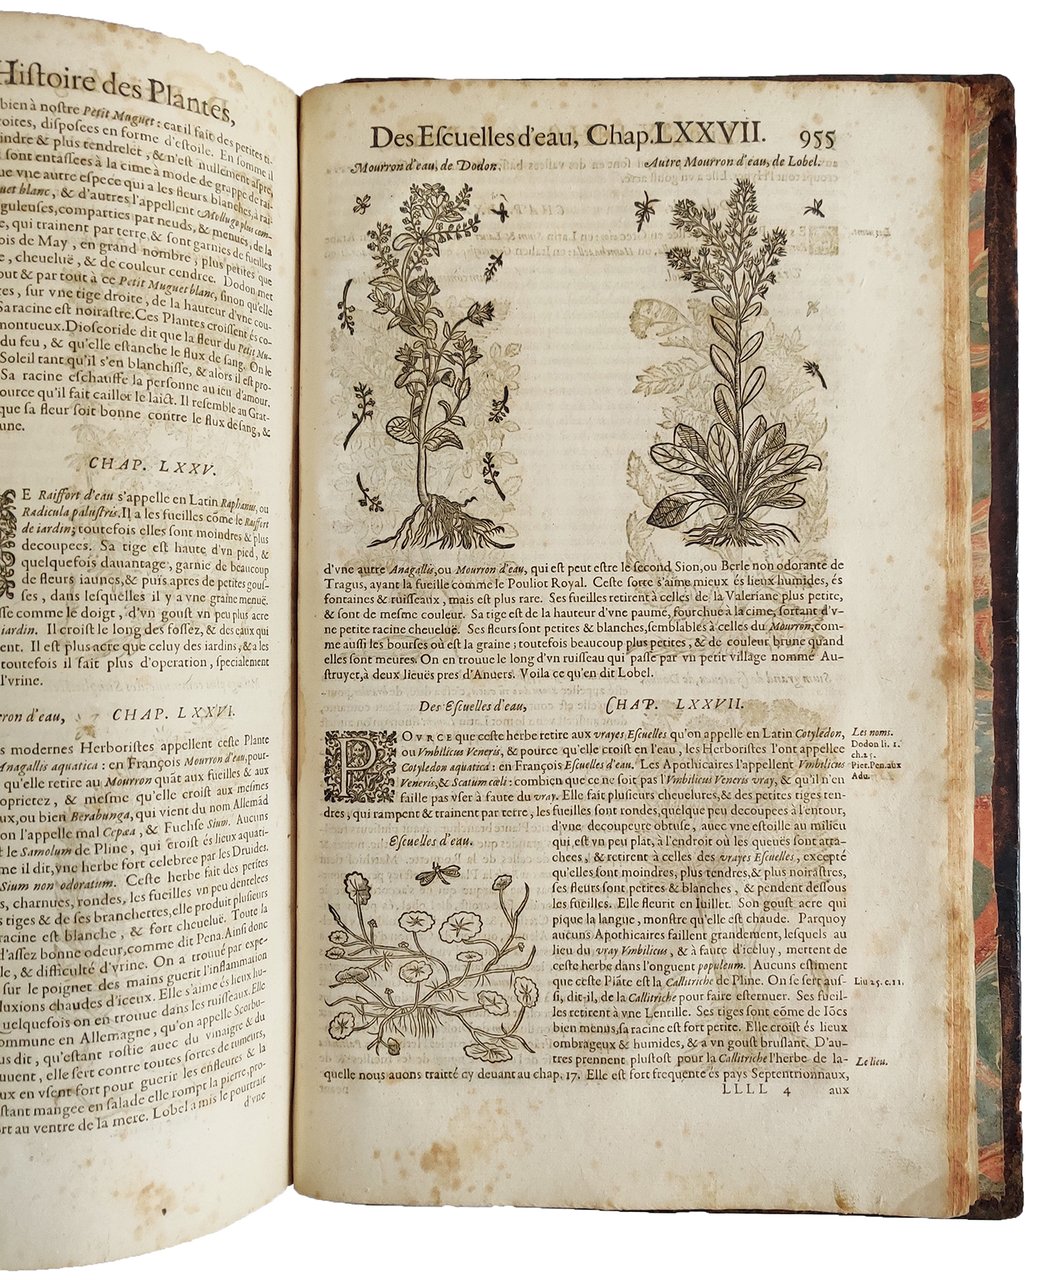 Histoire des Plantes,
bien à nostre Petit Muguet: car il fait des petites ti-
roites, disposees en forme d'estoile. En somme il
indre & plus tendrelet, & n'est nullement aspre,
sont entassées à la cime à mode de grappe de rai-
que vne autre espece qui a les fleurs blanches, à rai-
guet blanc, & d'autres l'appellent Mollugo plus com-
guleuses, comparties par neuds, & menues, de la
e, qui trainent par terre, & sont garnies de fueilles
ois de May, en grand nombre, plus petites que
, cheuelue, & de couleur cendree. Dodon met
out & par tout à ce Petit Muguet blanc, sinon qu'elle
res, sur vne tige droite, de la hauteur d'vne cou-
Sa racine est noirastre. Ces Plantes croissent és co-
montueux. Dioscoride dit que la fleur du Petit Mu-
du feu, & qu'elle estanche le flux de sang. On le
Soleil tant qu'il s'en blanchisse, & alors il est pro-
Sa racine eschauffe la personne au ieu d'amour,
ource qu'il fait cailler le laict. Il resemble au Grat-
que sa fleur soit bonne contre le flux de sang, &
une.
CHAP. LXXV.
E Raiffort d'eau s'appelle en Latin Raphanus, ou
Radicula palustris. Il a les fueilles cõme le Raiffort
de iardin; toutefois elles sont moindres & plus
decoupees. Sa tige est haute d'vn pied, &
quelquefois dauantage, garnie de beaucoup
de fleurs iaunes, & puis apres de petites gous-
ses, dans lesquelles il y a vne graine menuë.
sse comme le doigt, d'vn goust vn peu plus acre
iardin. Il croist le long des fossez, & des eaux qui
ent. Il est plus acre que celuy des iardins, & a les
toutefois il fait plus d'operation, specialement
l'vrine.
rron d'eau, CHAP. LXXVI.
s modernes Herboristes appellent ceste Plante
Anagallis aquatica: en François Mouron d'eau, pour-
qu'elle retire au Mourron quãt aux fueilles & aux
oprietez, & mesme qu'elle croist aux mesmes
ux, ou bien Berabunga, qui vient du nom Allemãd
on l'appelle mal Cepæa, & Fuchse Sium. Aucuns
t le Samolum de Pline, qui croist és lieux aquati-
me il dit, vne herbe fort celebree par les Druides.
Sium non odoratum. Ceste herbe fait des petites
s, charnues, rondes, les fueilles vn peu dentelees
s tiges & de ses branchettes, elle produit plusieurs
racine est blanche, & fort cheueluë. Toute la
d'assez bonne odeur, comme dit Pena. Ainsi donc
le, & difficulté d'vrine. On a trouué par expe-
sur le poignet des mains guerit l'inflammation
luxions chaudes d'iceux. Elle s'aime és lieux hu-
Quelquefois on en trouue dans les ruisseaux. Elle
ommune en Allemagne, qu'on appelle Scorbu-
us dit, qu'estant rostie auec du vinaigre & du
uuent, elle sert contre toutes sortes de tumeurs,
ux en vsent fort pour guerir les enflures & la
stant mangee en salade elle rompt la pierre, pro-
rt au ventre de la mere. Lobel a mis le pourtrait
d'vne
Des Escuelles d'eau, Chap. LXXVII. 955
Mourron d'eau, de Dodon. Autre Mourron d'eau, de Lobel.
d'vne autre Anagallis, ou Mourron d'eau, qui est peut estre le second Sion, ou Berle non odorante de
Tragus, ayant la fueille comme le Pouliot Royal. Ceste sorte s'aime mieux és lieux humides, és
fontaines & ruisseaux, mais est plus rare. Ses fueilles retirent à celles de la Valeriane plus petite,
& sont de mesme couleur. Sa tige est de la hauteur d'vne paume, fourchue à la cime, sortant d'v-
ne petite racine cheueluë. Ses fleurs sont petites & blanches, semblables à celles du Mourron, com-
me aussi les bourses où est la graine; toutefois beaucoup plus petites, & de couleur brune quand
elles sont meures. On en trouue le long d'vn ruisseau qui passe par vn petit village nommé Au-
struyet, à deux lieuës pres d'Anuers. Voila ce qu'en dit Lobel.
Des Escuelles d'eau, CHAP. LXXVII.
POVRCE que ceste herbe retire aux vrayes Escuelles qu'on appelle en Latin Cotyledon,
ou Vmbilicus Veneris, & pource qu'elle croist en l'eau, les Herboristes l'ont appellee
Cotyledon aquatica: en François Escuelles d'eau. Les Apothicaires l'appellent Vmbilicus
Veneris, & Scatum cœli: combien que ce ne soit pas l'Vmbilicus Veneris vray, & qu'il n'en
faille pas vser à faute du vray. Elle fait plusieurs cheuelures, & des petites tiges ten-
dres, qui rampent & trainent par terre, les fueilles sont rondes, quelque peu decoupees à l'entour,
Les noms.
Dodon li. 1.
ch. 25.
Piet. Pen. aux
Adu.
Escuelles d'eau.
d'vne decoupeure obtuse, auec vne estoille au milieu
qui est vn peu plat, à l'endroit où les queuës sont atta-
chees, & retirent à celles des vrayes Escuelles, excepté
qu'elles sont moindres, plus tendres, & plus noirastres,
ses fleurs sont petites & blanches, & pendent dessous
les fueilles. Elle fleurit en Iuillet. Son goust acre qui
pique la langue, monstre qu'elle est chaude. Parquoy
aucuns Apothicaires faillent grandement, lesquels au
lieu du vray Vmbilicus, & à faute d'iceluy, mettent de
ceste herbe dans l'onguent populeum. Aucuns estiment
que ceste Plãte est la Callitriche de Pline. On se sert aus-
si, dit-il, de la Callitriche pour faire esternuer. Ses fueil-
les retirent à vne Lentille. Ses tiges sont de Iõcs
bien menus, sa racine est fort petite. Elle croist és lieux
ombrageux & humides, & a vn goust bruslant. D'au-
tres prennent plustost pour la Callitriche l'herbe de la-
quelle nous auons traitté cy deuant au chap. 17. Elle est fort frequente és pays Septentrionnaux,
Liu 25. c. 11.
Le lieu.
LLLL 4 aux